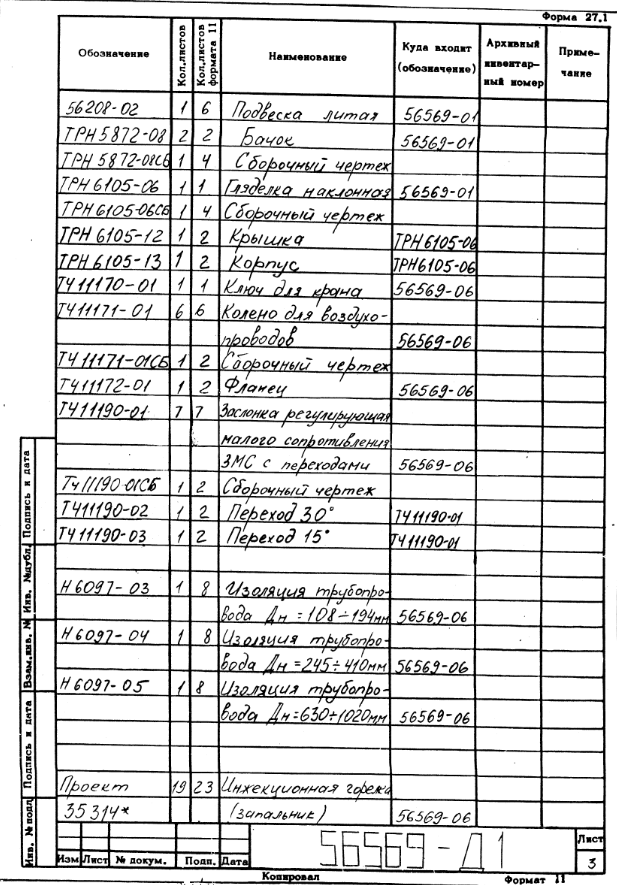 Форма 27.1
Обозначение Кол.листов Кол.листов формата 11 Наименование Куда входит (обозначение) Архивный инвентар- ный номер Приме- чание
56208-02 1 6 Подвеска литая 56569-01
ТРН5872-08 2 2 Бачок 56569-01
ТРН5872-08СБ 1 4 Сборочный чертеж
ТРН6105-06 1 1 Гляделка наклонная 56569-01
ТРН6105-06СБ 1 4 Сборочный чертеж
ТРН6105-12 1 2 Крышка ТРН6105-06
ТРН6105-13 1 2 Корпус ТРН6105-06
ТЧ11170-01 1 1 Ключ для крана 56569-06
ТЧ11171-01 6 6 Колено для воздухо-
проводов 56569-06
ТЧ11171-01СБ 1 2 Сборочный чертеж
ТЧ11172-01 1 2 Фланец 56569-06
ТЧ11190-01 7 7 Заслонка регулирующая
малого сопротивления
ЗМС с переходами 56569-06
ТЧ11190-01СБ 1 2 Сборочный чертеж
ТЧ11190-02 1 2 Переход 30° ТЧ11190-01
ТЧ11190-03 1 2 Переход 15° ТЧ11190-01
Н6097-03 1 8 Изоляция трубопро-
вода Дн =108÷194мм 56569-06
Н6097-04 1 8 Изоляция трубопро-
вода Дн =245÷410мм 56569-06
Н6097-05 1 8 Изоляция трубопро-
вода Дн=630÷1020мм 56569-06
Проект 19 23 Инжекционная горелка
35314* (запальник) 56569-06
Инв. № подл Подпись и дата Взам.инв. № Инв. №дубл. Подпись и дата
Изм Лист № докум. Подп. Дата
56569-Д1
Лист
3
Копировал Формат 11